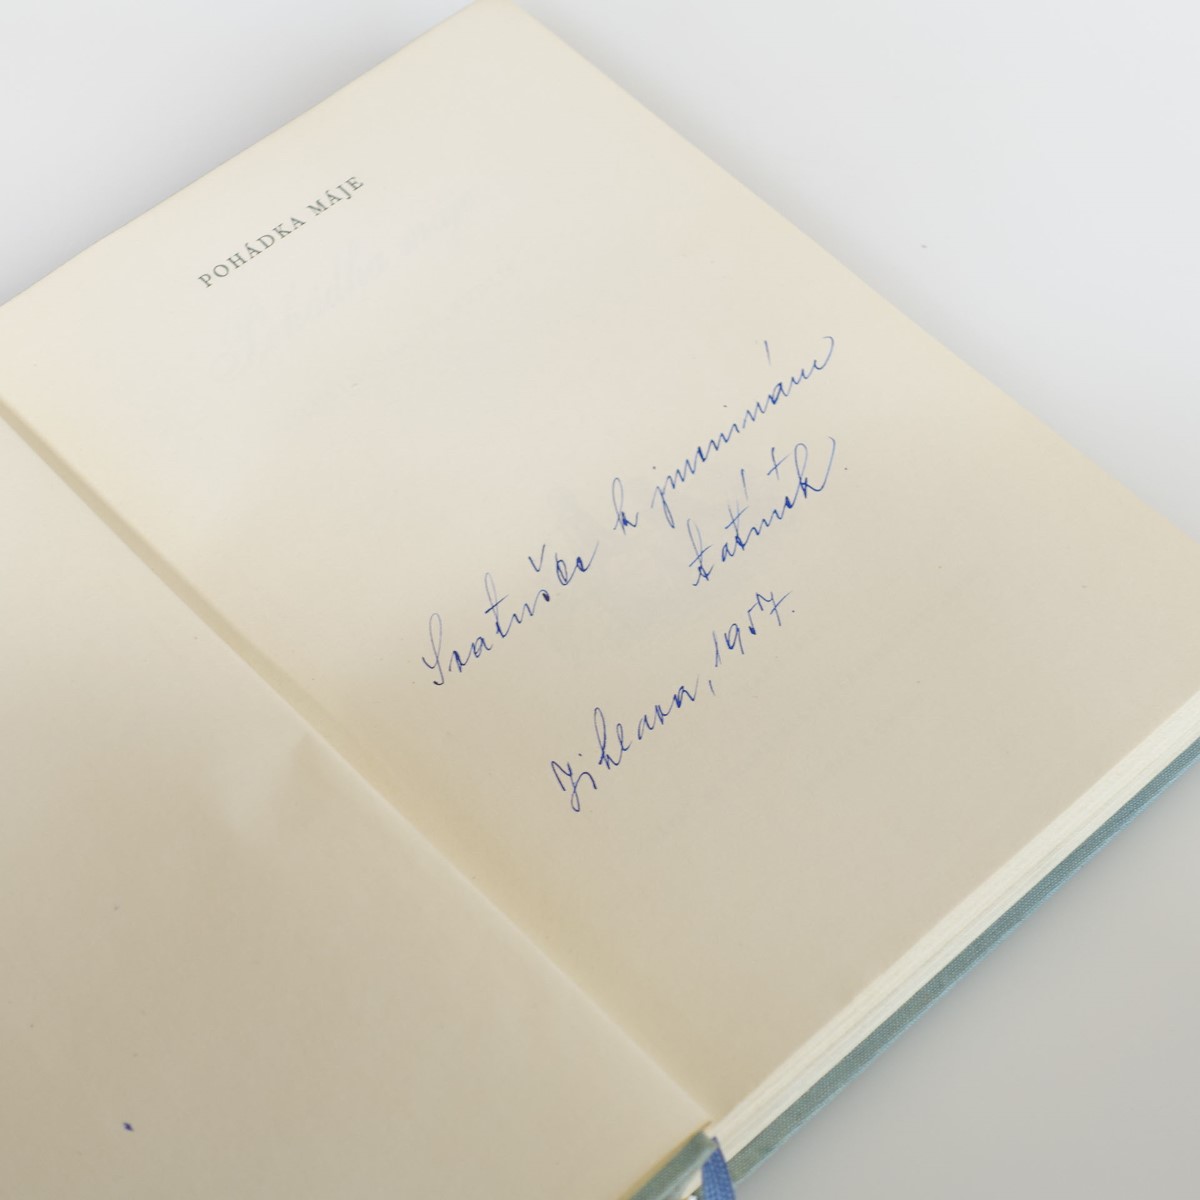 POHÁDKA MÁJE
Svatušce k jmeninám
tatínek.
Jihlava, 1957.